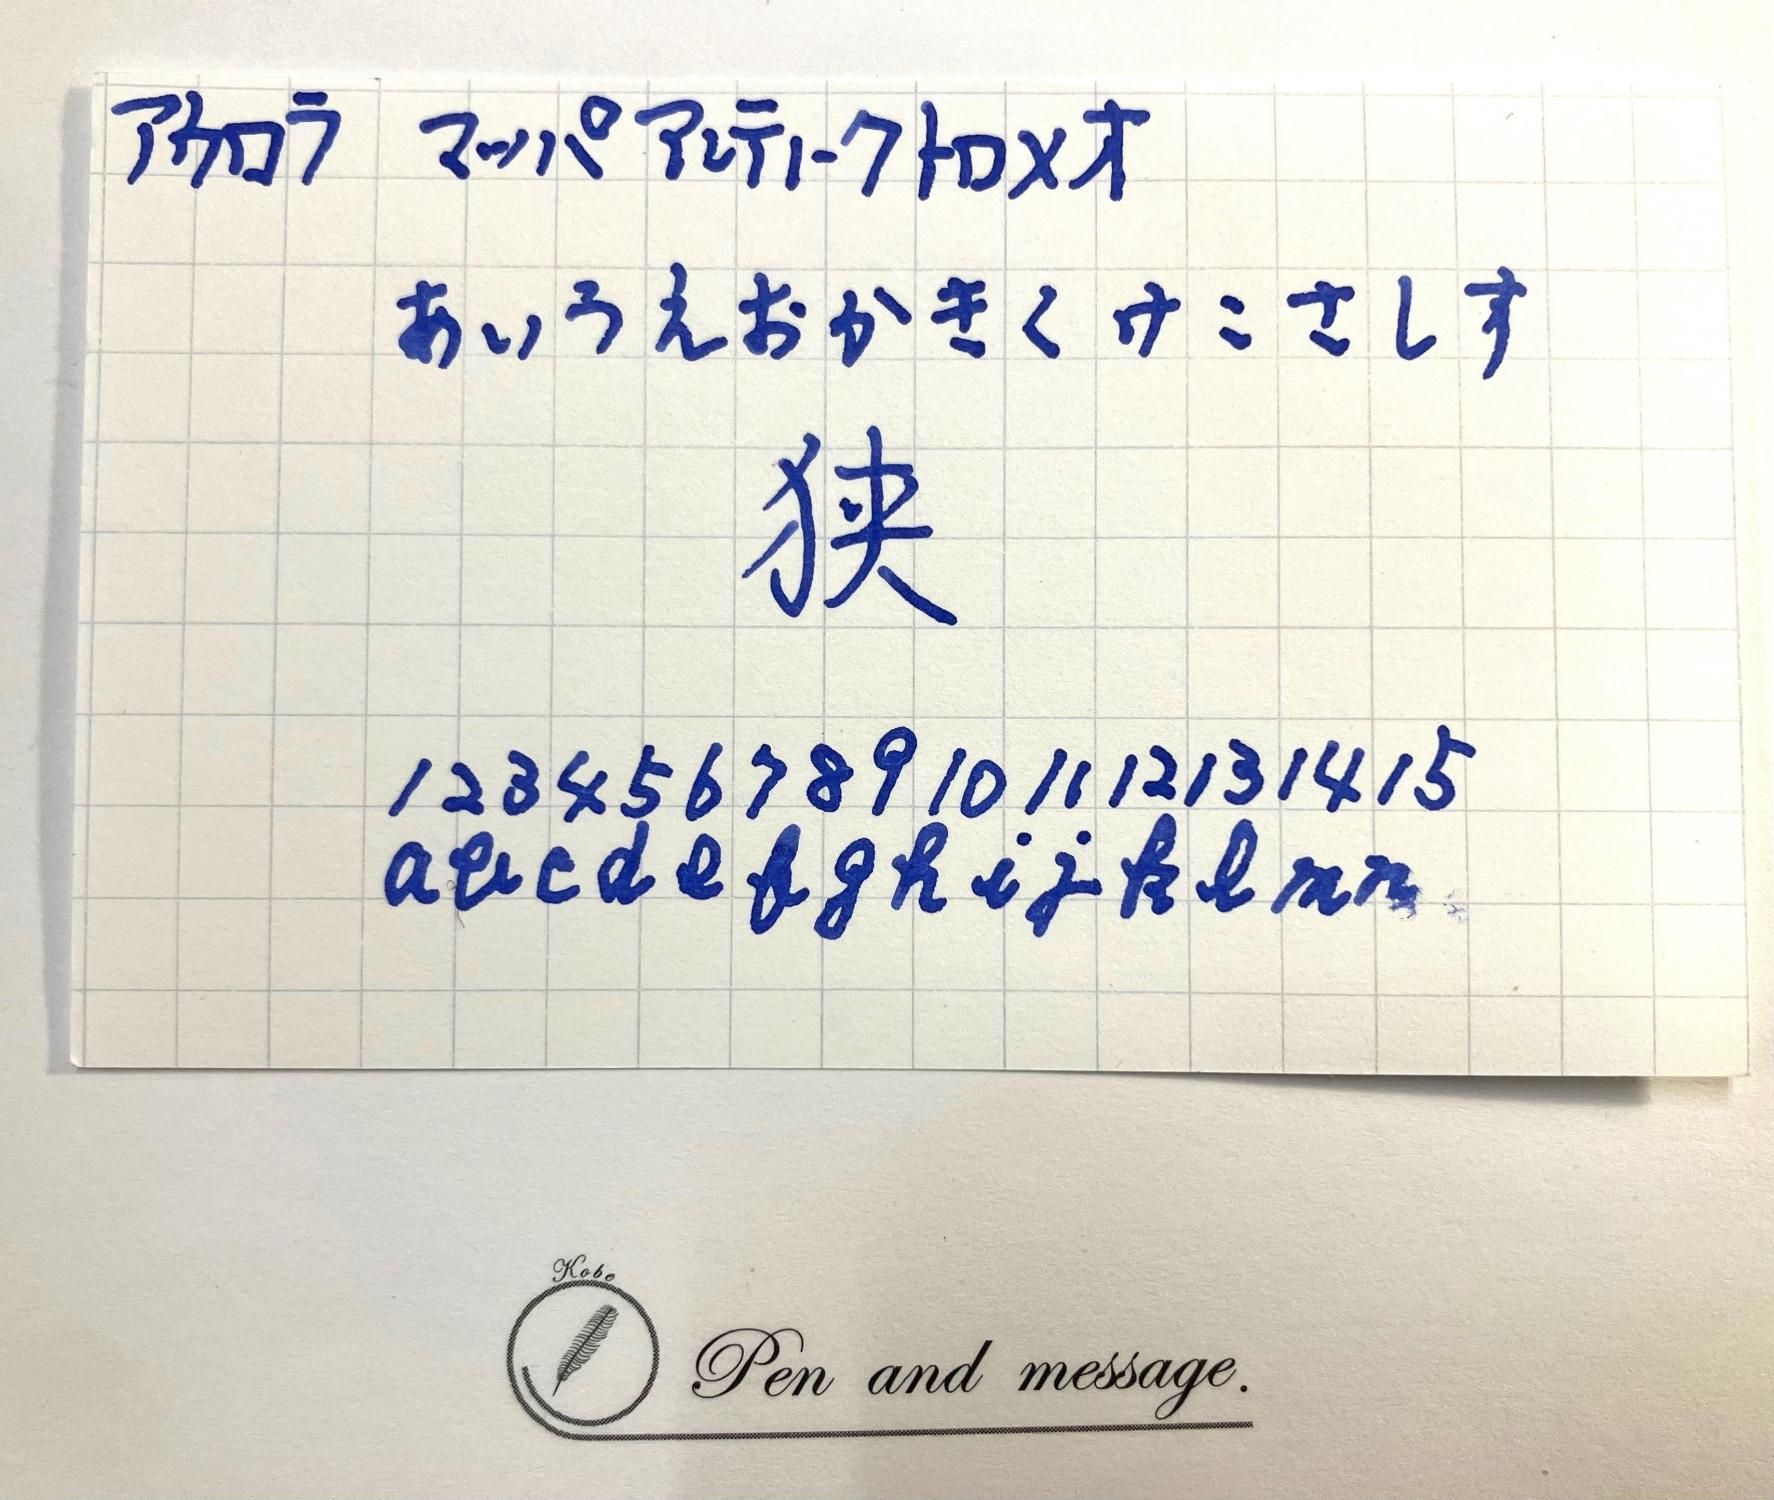 アウロラ マッパ アンティーク トロメオ
あいうえおかきくけこさしす
狭
1 2 3 4 5 6 7 8 9 10 11 12 13 14 15
a b c d e f g h i j k l m n
Kobe
Pen and message.